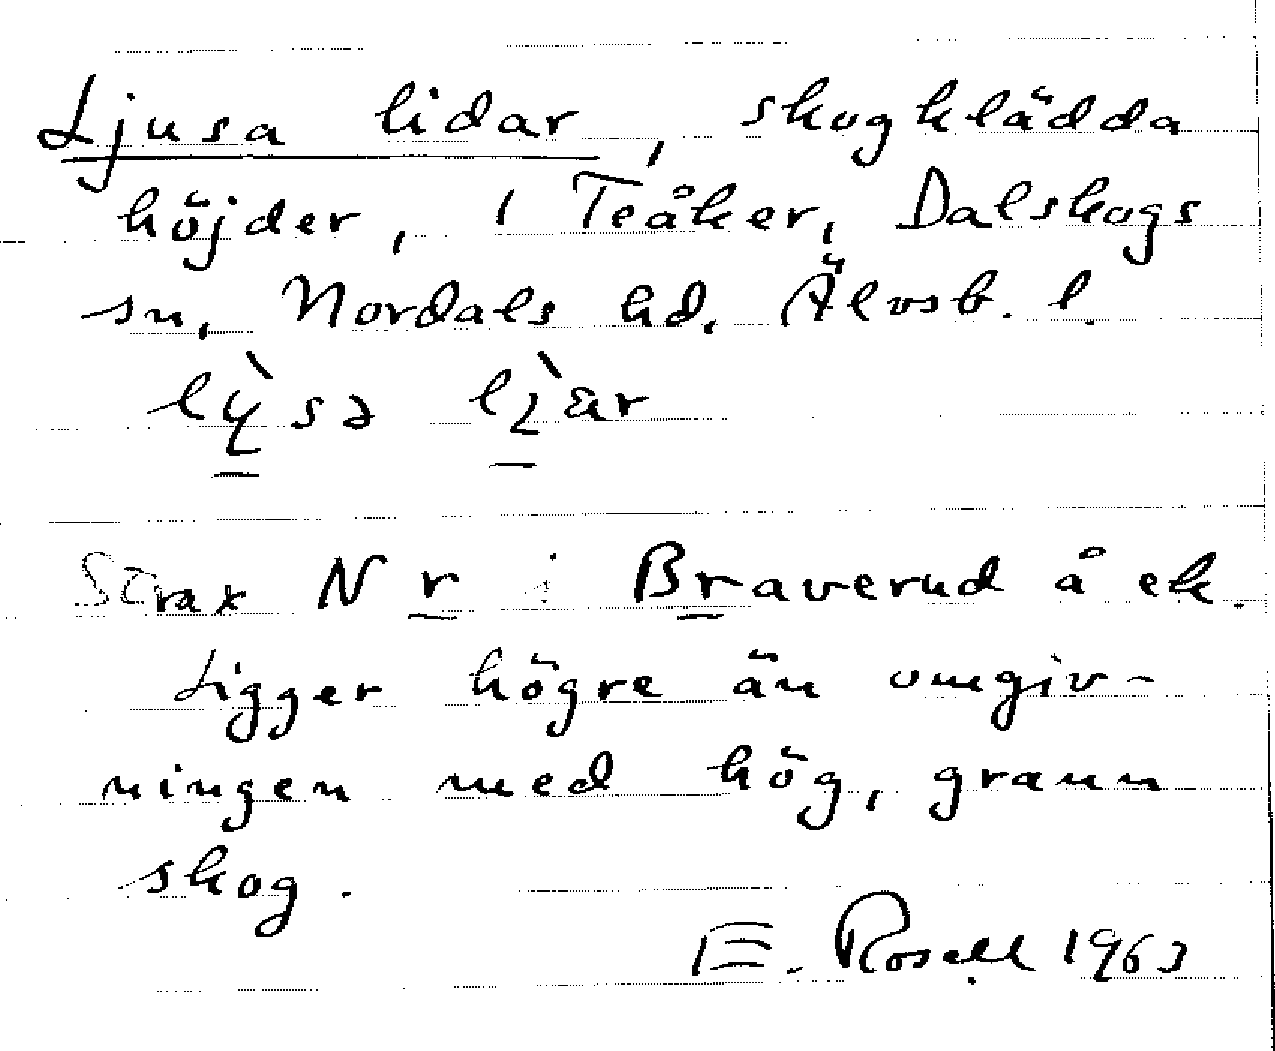 Ljusa lidar, skogklädda
höjder, i Teåker, Dalskogs
sn, Nordals hd. Älvsb. l.
Strax N r i Braverud å ek.
Ligger högre än omgiv-
ningen med hög, grann
skog.
E. Rosell 1963